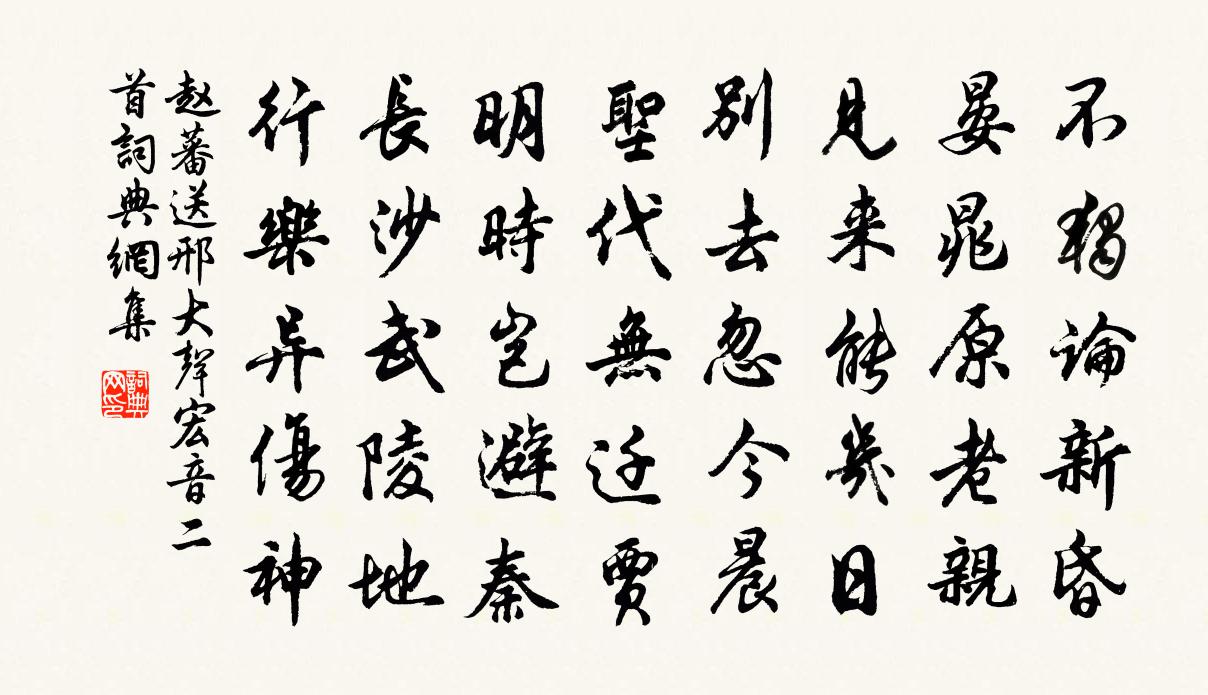 不獨論新昏
晏晁原老親
見来能幾日
別去忽今晨
聖代無迁賈
明時岂避秦
長沙武陵地
行樂异傷神
赵蕃送邢大聲宏音二
首詞典網集
詞典
网印